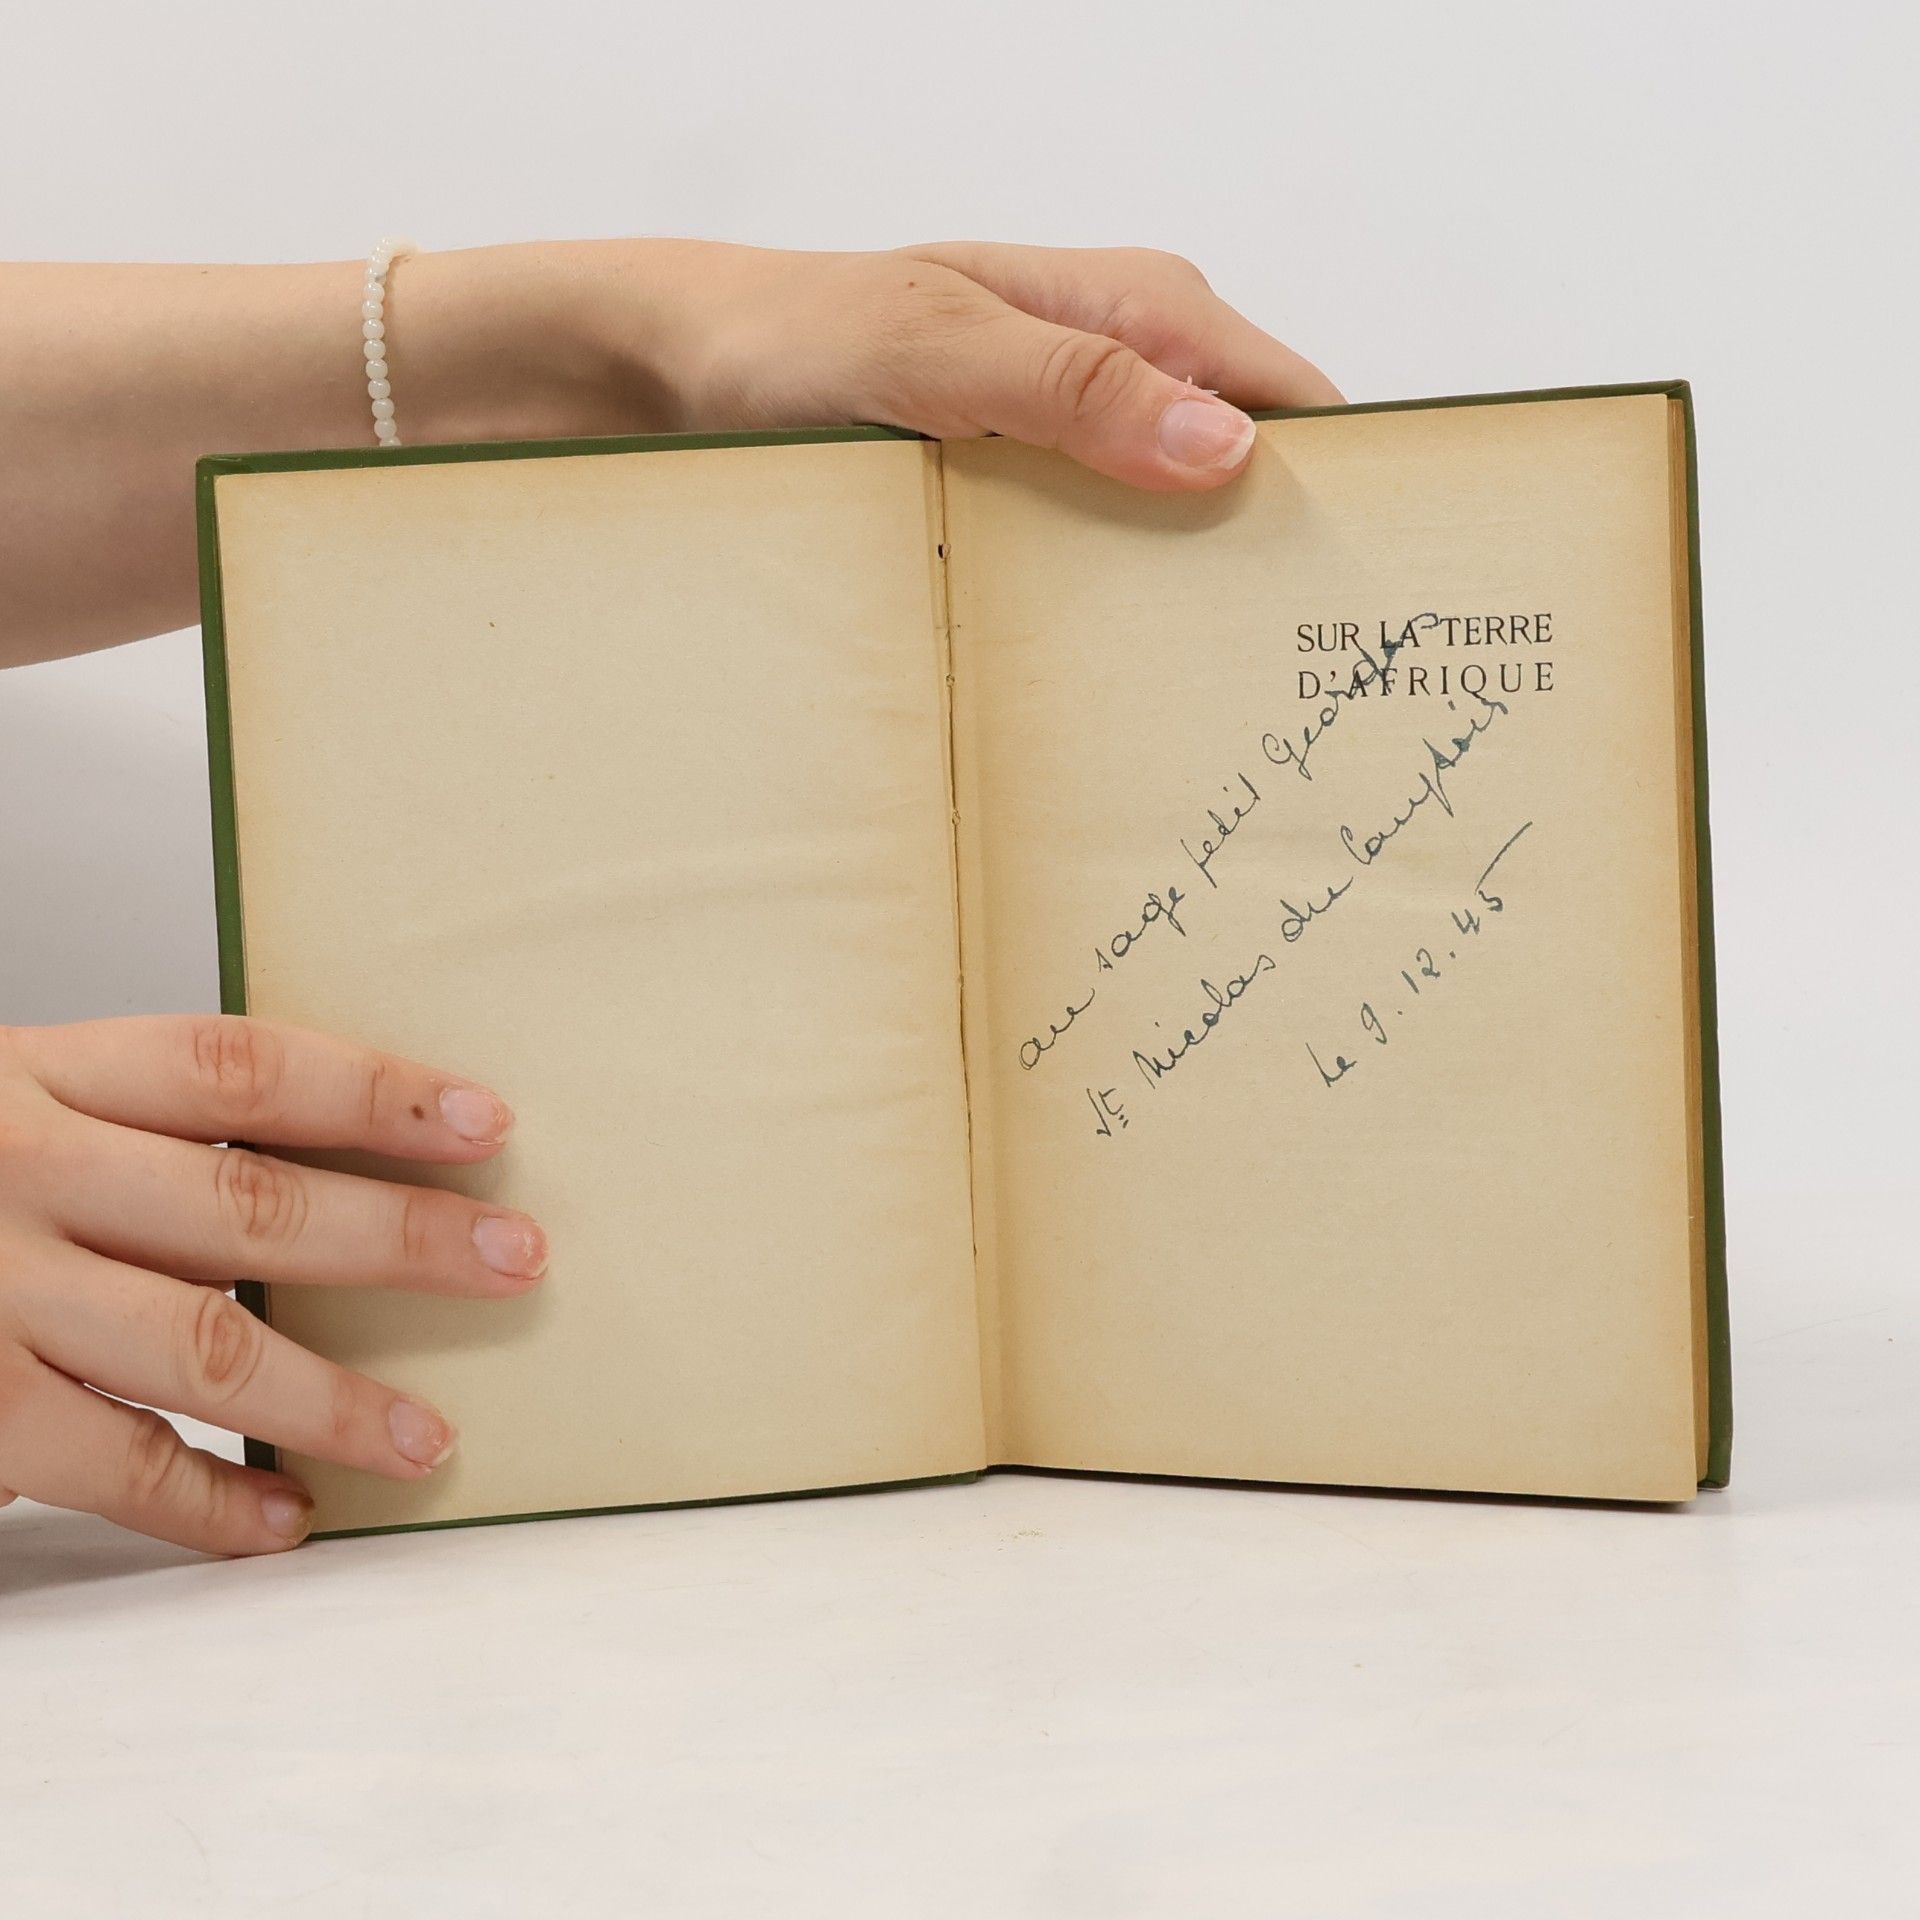 SUR LA TERRE
D'AFRIQUE
au sage petit Georges
St Nicolas du Comptoir
Le 9.12.45